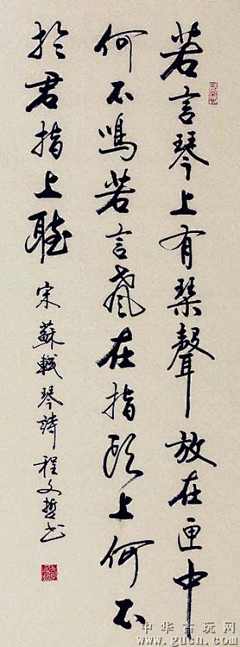 若言琴上有琴聲放在匣中
何不鳴若言聲在指頭上何不
於君指上聽
宋蘇軾琴詩程文哲书
中华古玩网
www.gucn.com